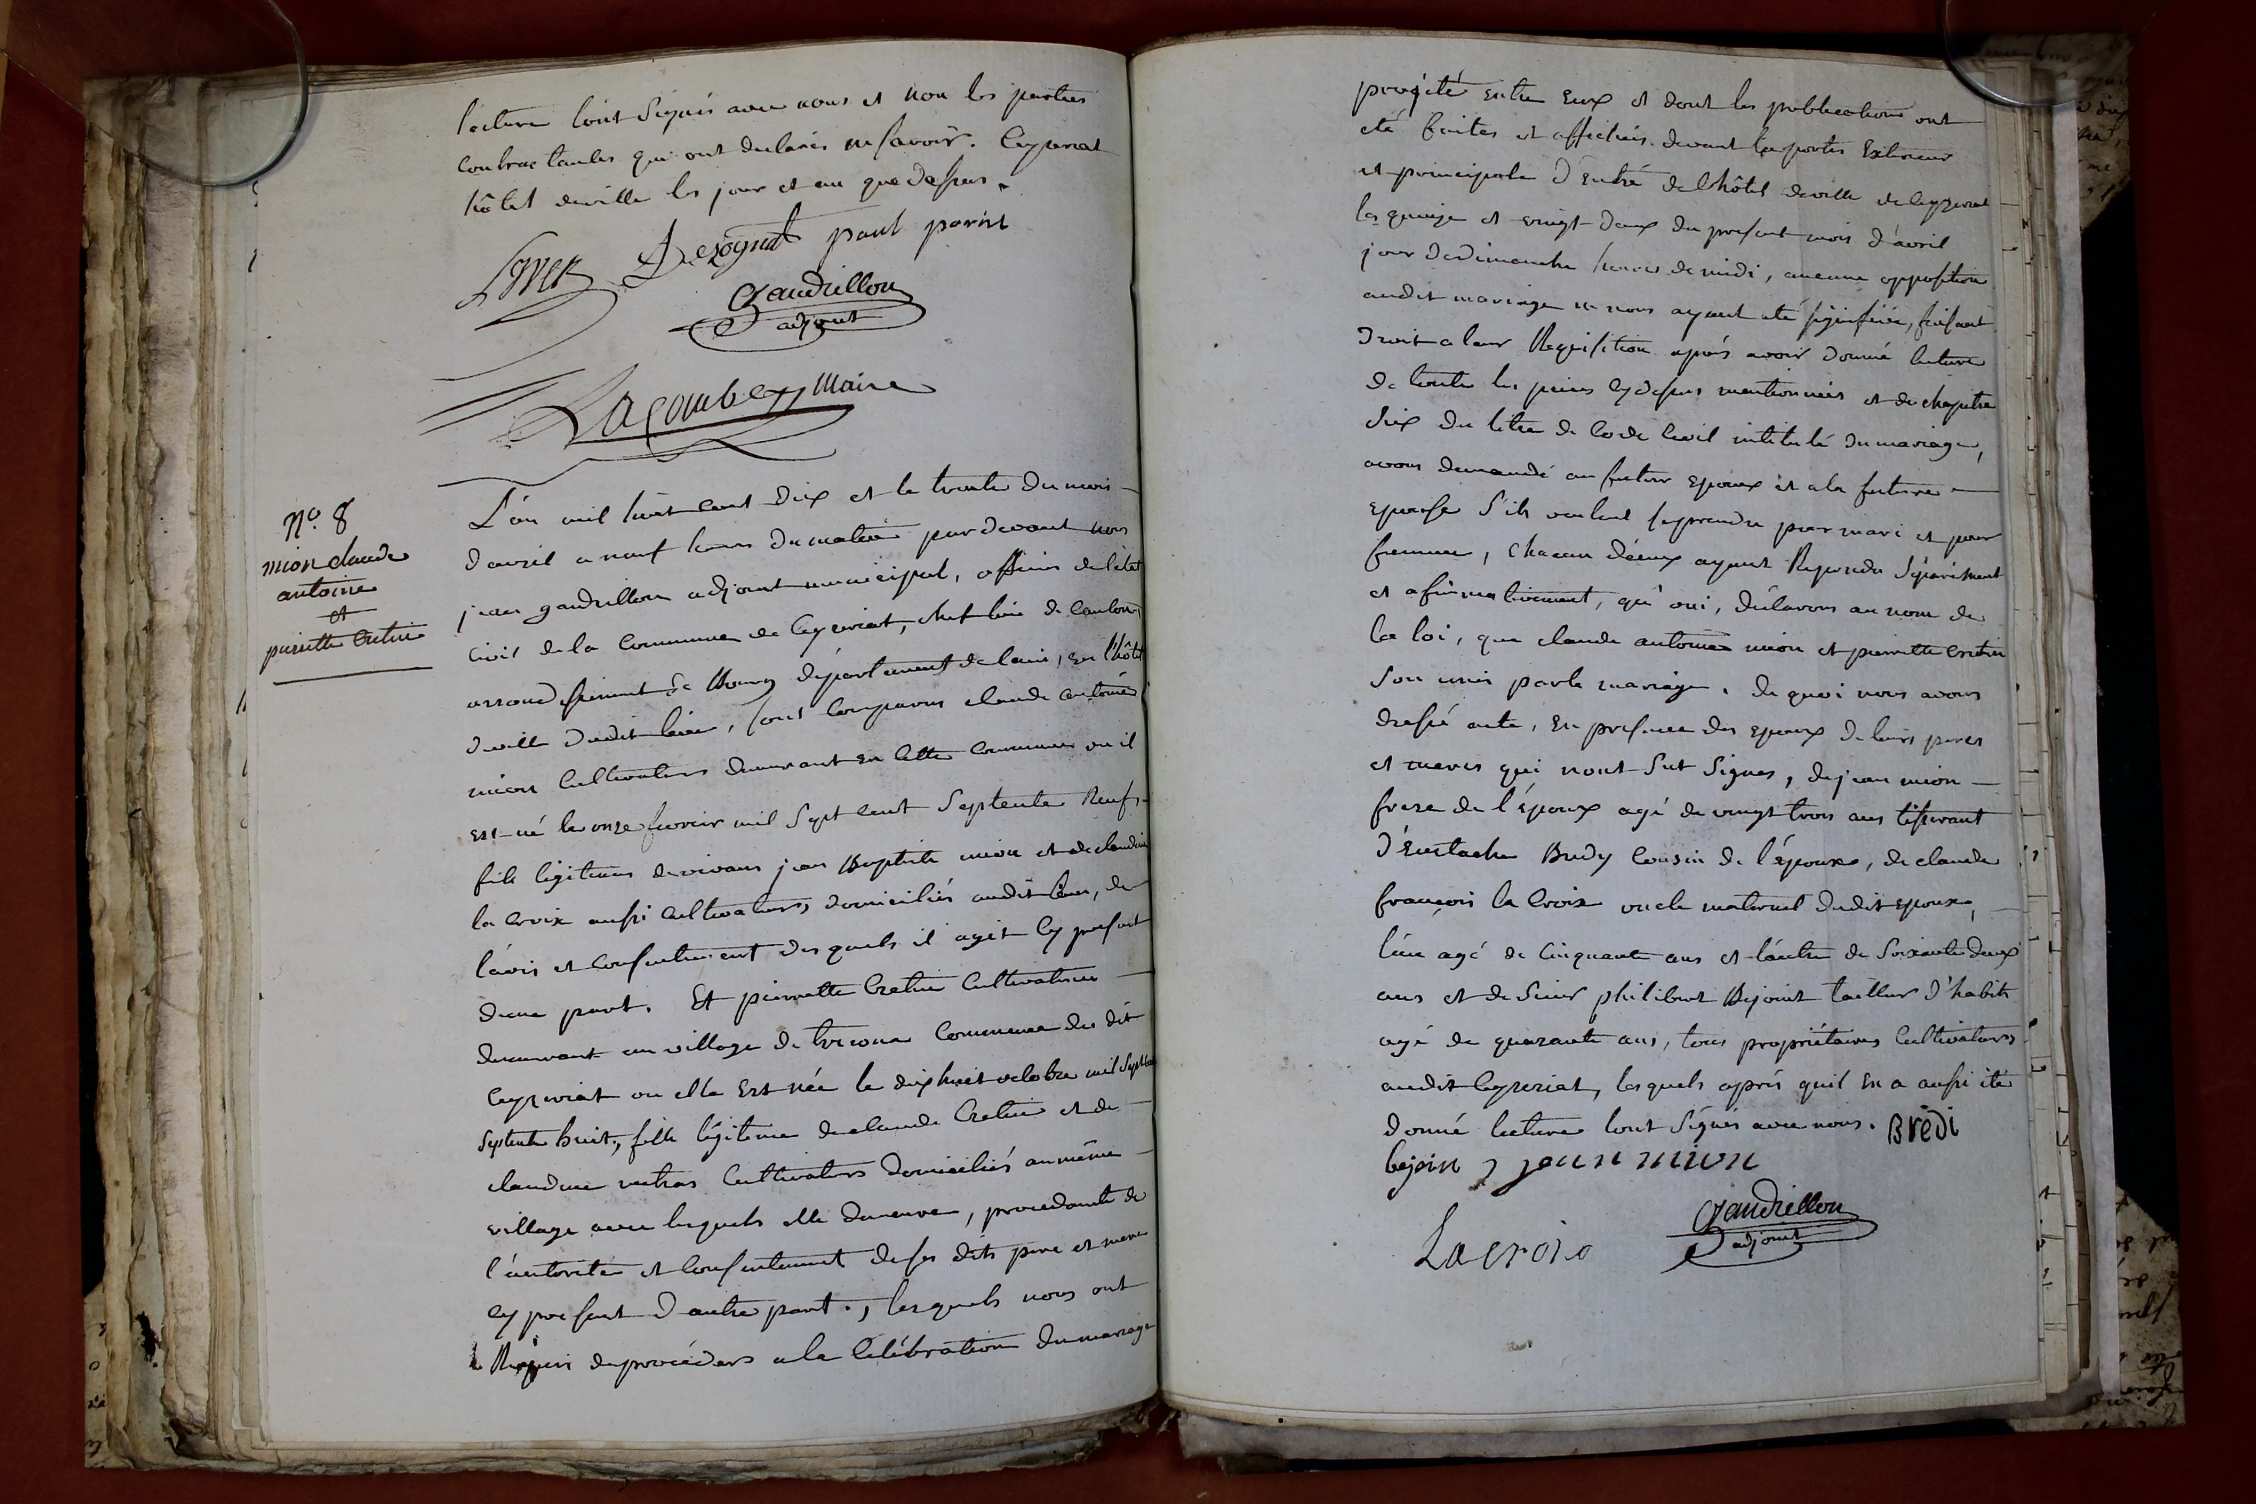 lecture l'ont signés avec nous et non les parties
contractantes qui ont déclarés ne savoir. Ceyzeriat
hôtel deville les jour et an que dessus.
Dezognat paul parint
gaudrillon
adjoint
Lacombe Maire
N.o 8
mion claude
antoine
et
pierrette Cretin
L'an mil huit cent dix et le trente du mois
d'avril a neuf heures du matin par devant nous
jean gaudrillon adjoint municipal, officier de l'état
civil de la Commune de Ceyzeriat, chef lieu de Canton,
arrondissement de Bourg département de lain, en l'hôtel
deville dudit lieu, sont Comparus claude antoine
mion Cultivateur demeurant en Cette Commune ou il
est né le onze fevrier mil Sept cent Septente Neuf,
fils légitime de vivans jean Baptiste mion et de claudine
la Croix aussi Cultivateurs, domiciliés audit lieu, de
l'avis et Consentement des quels il agit Cy présent
d'une part. Et pierrette Cretin Cultivatrice
demeurant au village de tresona Commune du dit
Ceyzeriat ou elle Est née le dix huit octobre mil Sept cent
Septente huit, fille légitime de claude Cretin et de
claudine Cultivateurs domiciliés au même
village avec lesquels elle demeure, procedante de
l'autorité et Consentement de ses dits pere et mere
cy présent d'autre part., lesquels nous ont
Requis de procéders a la Célébration du mariage
projeté entre Eux et dont les publications ont
été faites et affichées devant la porte Exterieur
et principale d'Entré de l'hôtel deville de Ceyzeriat
les quinze et vingt-deux du présent mois d'avril
jour de dimanche heures de midi, aucune opposition
audit mariage ne nous ayant été signifiée, faisant
droit a leur Requisition aprés avoir donné lecture
de toute les pieces cy dessus mentionnées et du chapitre
Six du titre de Code Civil intitulé du mariage,
avons demandé au futur Epoux et a la future
Epouse S'ils veulent se prendre pour mari et pour
femme, Chacun d'eux ayant Repondu Séparément
et afirmativement, qu'oui, déclarons au nom de
la loi, que claude antoine mion et pierrette cretin
Son unis par le mariage. de quoi nous avons
dressé acte, En présence des Epoux de leurs peres
et meres qui n'ont Sut Signer, de jean mion
frere de l'Epoux agé de vingt trois ans tisserant
d'Eustache Bredy Cousin de l'épouse, de claude
françois la Croix oncle maternel dudit epoux,
l'un agé de Cinquante ans et l'autre de Soixante deux
ans et de Sieur philibert Bejoint tailleur d'habits
agé de quarante ans, tous propriétaires Cultivateurs
audit Ceyzeriat, lesquels aprés qu'il En a aussi été
donné lecture l'ont Signés avec nous. Brédi
bejoin jean mion
Lacroix gaudrillon
adjoint